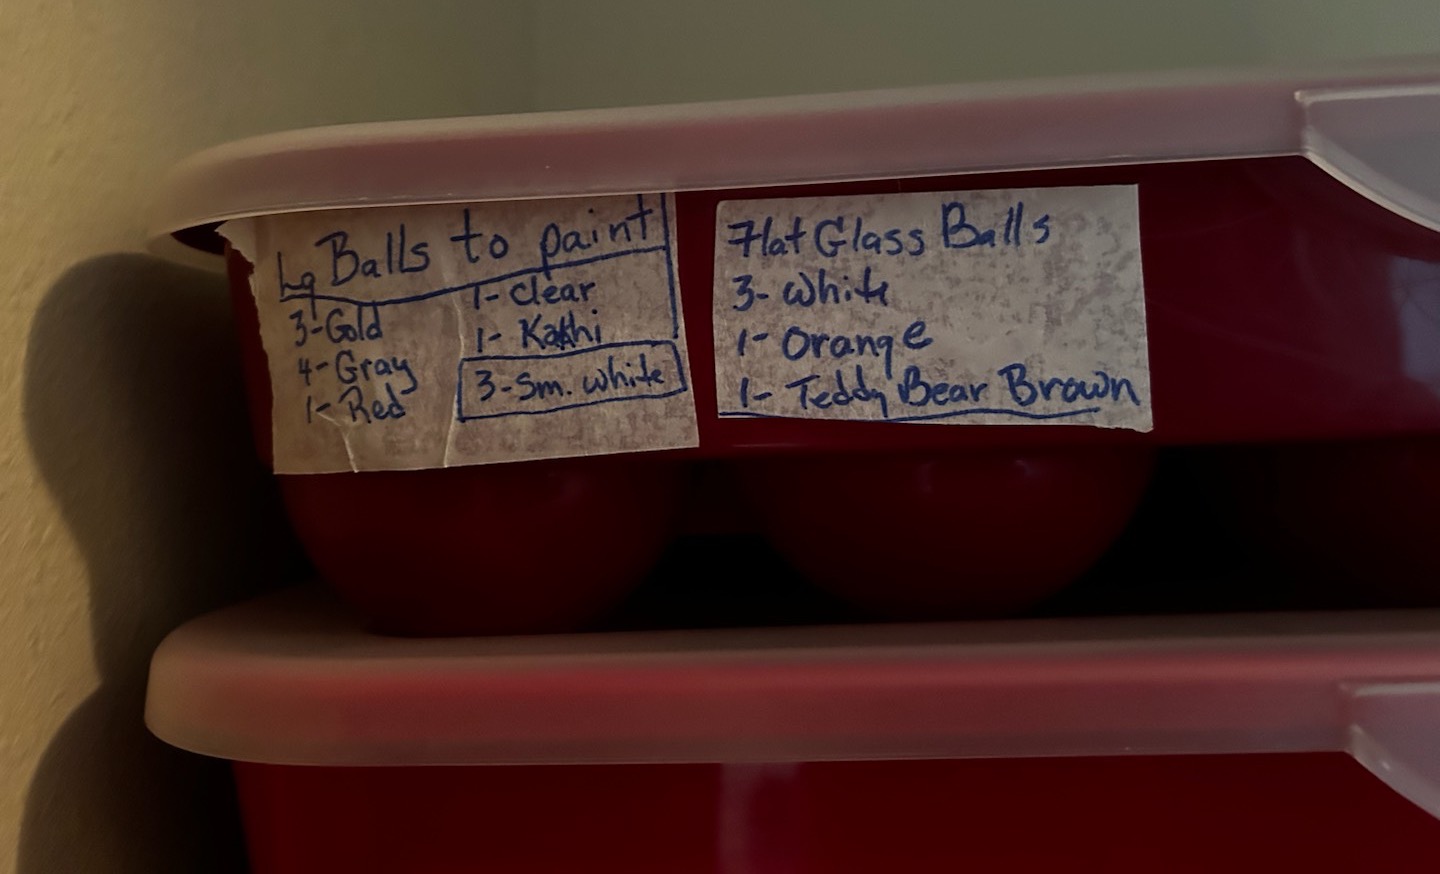 Lg Balls to paint
3-Gold
4-Gray
1-Red
1-clear
1-Kakhi
3-Sm. white
Flat Glass Balls
3-white
1-Orange
1-Teddy Bear Brown